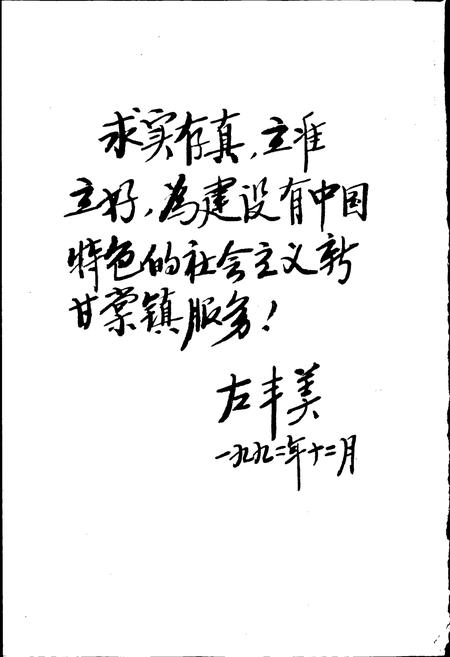 求实存真，立准
立好，为建设有中国
特色的社会主义新
甘棠镇服务！
左丰美
一九九二年十二月